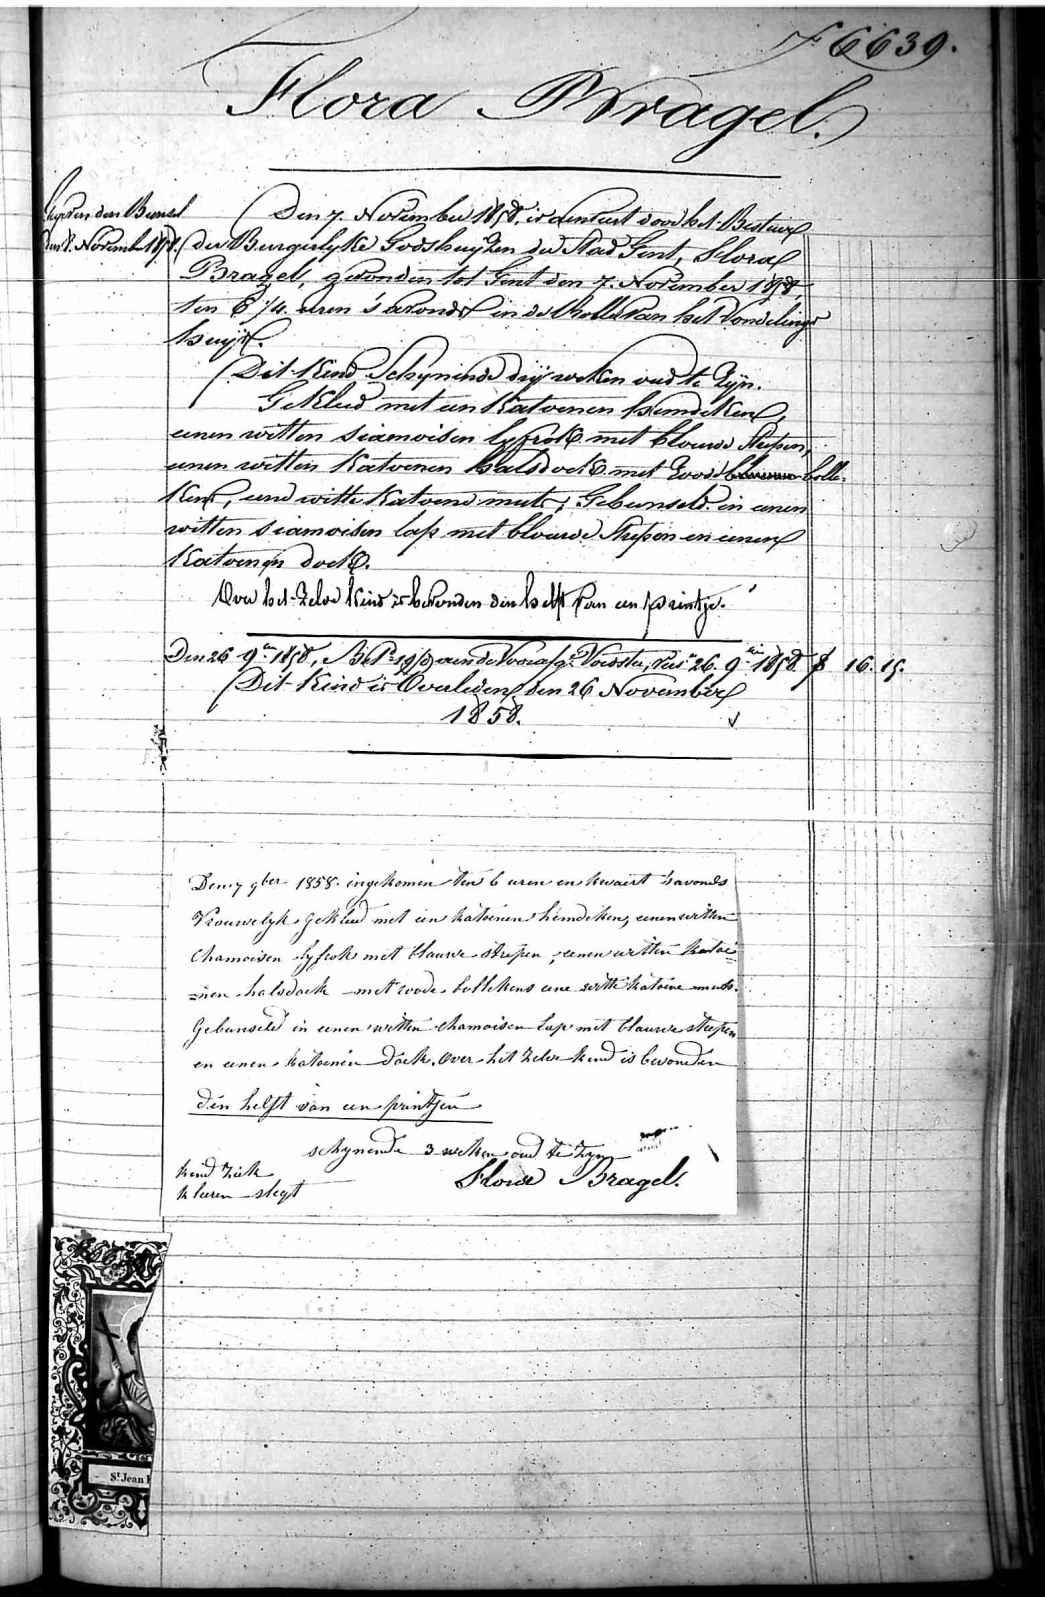 f 6639.
Flora Bragel.
den Bunsel
den 8. November 1858.
Den 7. November 1858. is aenveert door het Bestuer
der Burgerlyke Godshuyzen der Stad Gent, Flora
Bragel, gevonden tot Gent den 7. November 1858,
ten 6 1/4. uren 's avonds in de Rolle van het Vondelings
huys.
Dit Kind Schynende dry weken oud te zyn.
Gekleed met een Katoenen hemdeken,
eenen witten siamoisen lyfrok met blauwe strepen,
eenen witten Katoenen halsdoek met roode bolle-
kens, eene witte Katoene muts; Gebunseld in eenen
witten siamoisen lap met blauwe strepen en eenen
Katoenen doek.
Over het zelve Kind is bevonden den helft van een printje.
Den 26 9ber 1858, 26. 9ber 1858. 16. 15.
Dit Kind is Overleden den 26 November
1858.
Den 7 9ber 1858. ingekomen ten 6 uren en kwaert 's avonds
Vrouwelyk, gekleed met een katoenen hemdeken, eenen witten
chamoisen lyfrok met blauwe strepen, eenen witten katoe-
nen halsdoek met roode bollekens eene witte katoene muts.
Gebunseld in eenen witten chamoisen lap met blauwe strepen
en eenen katoenen doek. Over het zelve kind is bevonden
den helft van een printjen
schynende 3 weken oud te zyn
kind ziek
kleeren slegt
Flora Bragel.
St. Jean